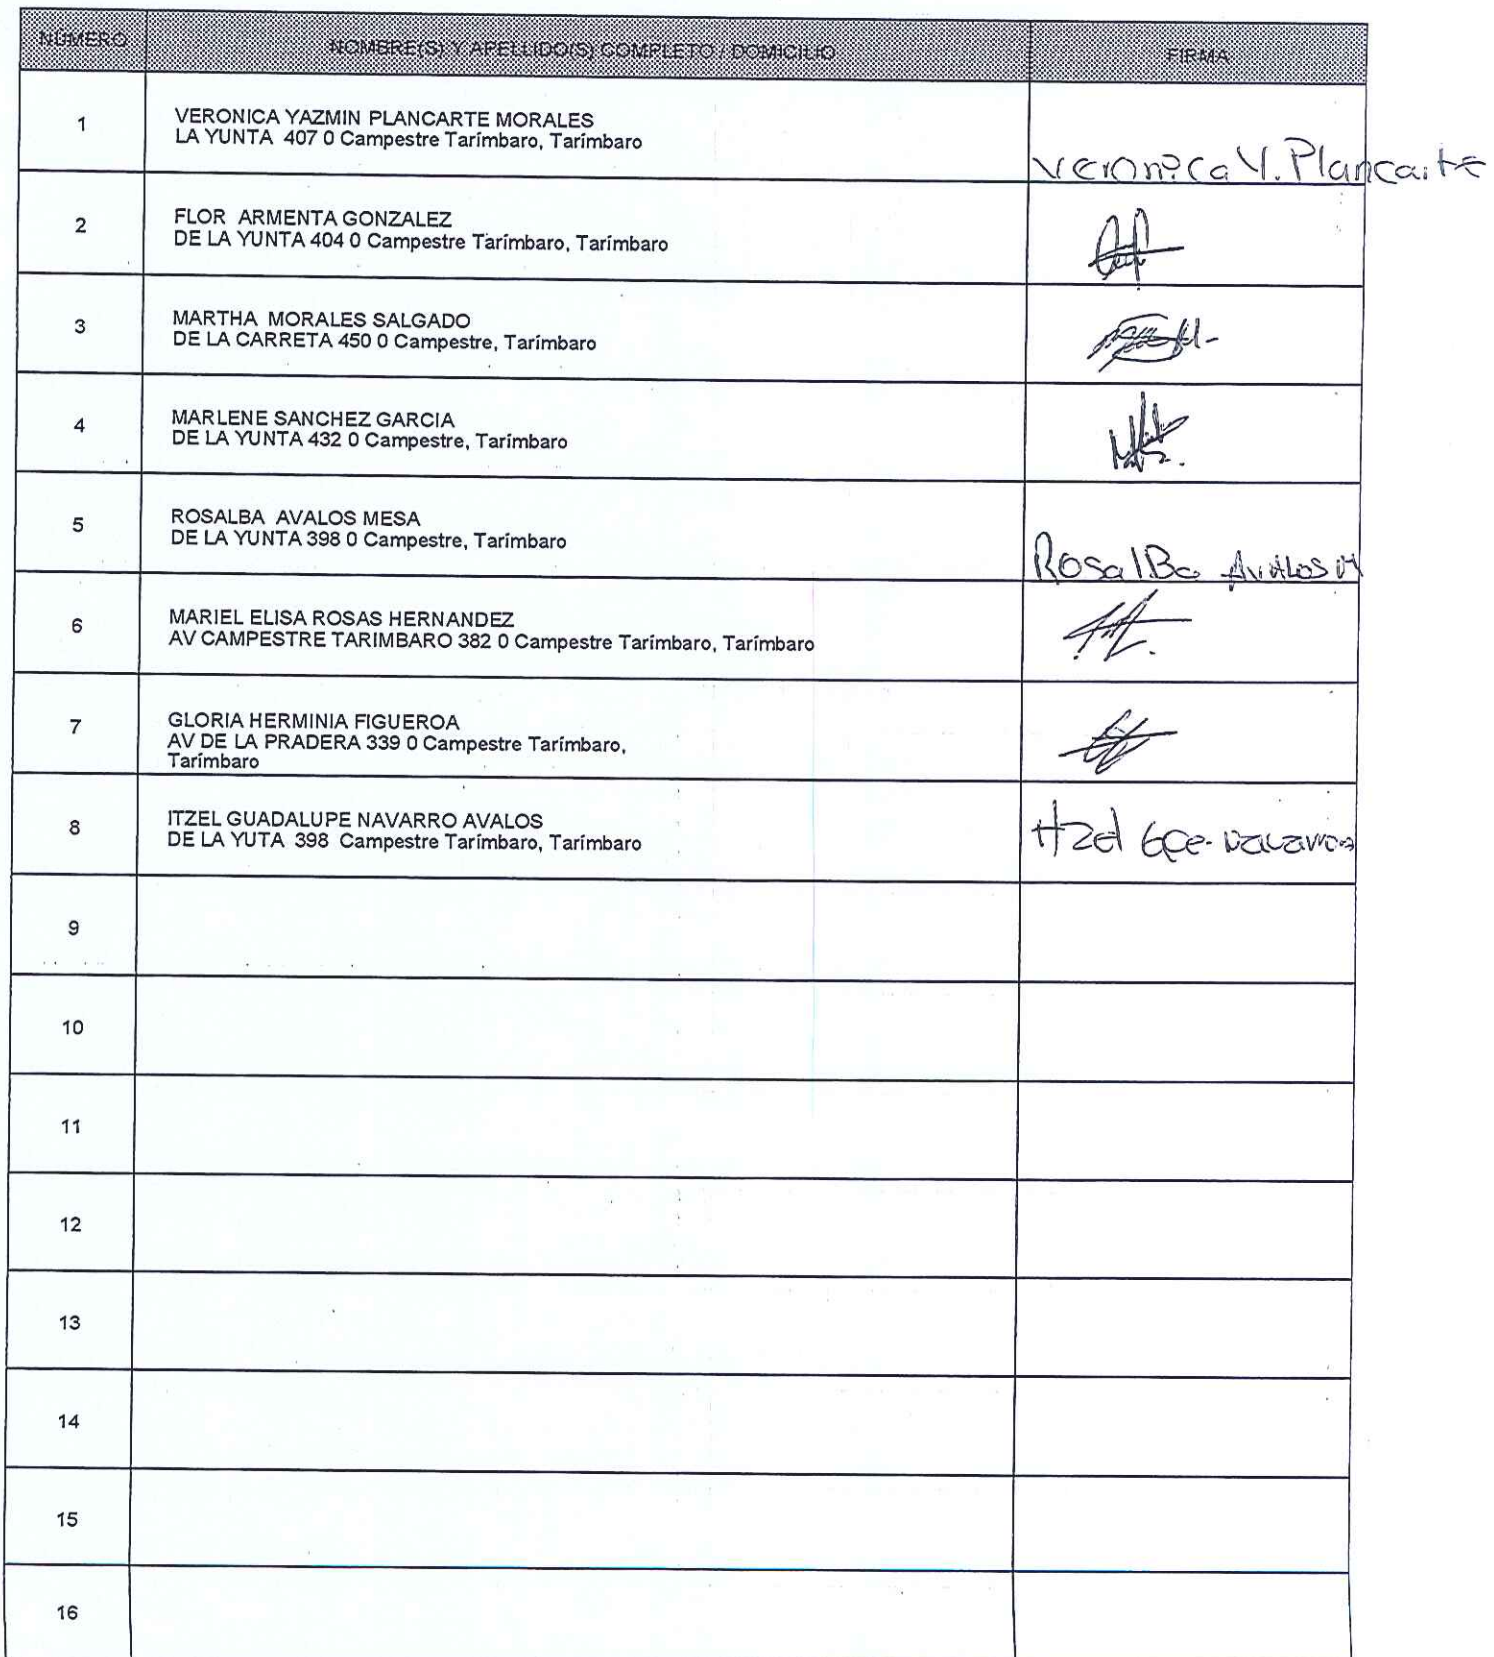 NÚMERO NOMBRE(S) Y APELLIDO(S) COMPLETO / DOMICILIO FIRMA
1 VERONICA YAZMIN PLANCARTE MORALES
LA YUNTA 407 0 Campestre Tarímbaro, Tarímbaro
Veronica Y. Plancarte
2 FLOR ARMENTA GONZALEZ
DE LA YUNTA 404 0 Campestre Tarímbaro, Tarímbaro
3 MARTHA MORALES SALGADO
DE LA CARRETA 450 0 Campestre, Tarímbaro
4 MARLENE SANCHEZ GARCIA
DE LA YUNTA 432 0 Campestre, Tarímbaro
5 ROSALBA AVALOS MESA
DE LA YUNTA 398 0 Campestre, Tarímbaro
RosalBa Avalos M
6 MARIEL ELISA ROSAS HERNANDEZ
AV CAMPESTRE TARIMBARO 382 0 Campestre Tarímbaro, Tarímbaro
7 GLORIA HERMINIA FIGUEROA
AV DE LA PRADERA 339 0 Campestre Tarímbaro,
Tarímbaro
8 ITZEL GUADALUPE NAVARRO AVALOS
DE LA YUTA 398 Campestre Tarímbaro, Tarímbaro
Itzel Gpe. Navarro
9
10
11
12
13
14
15
16